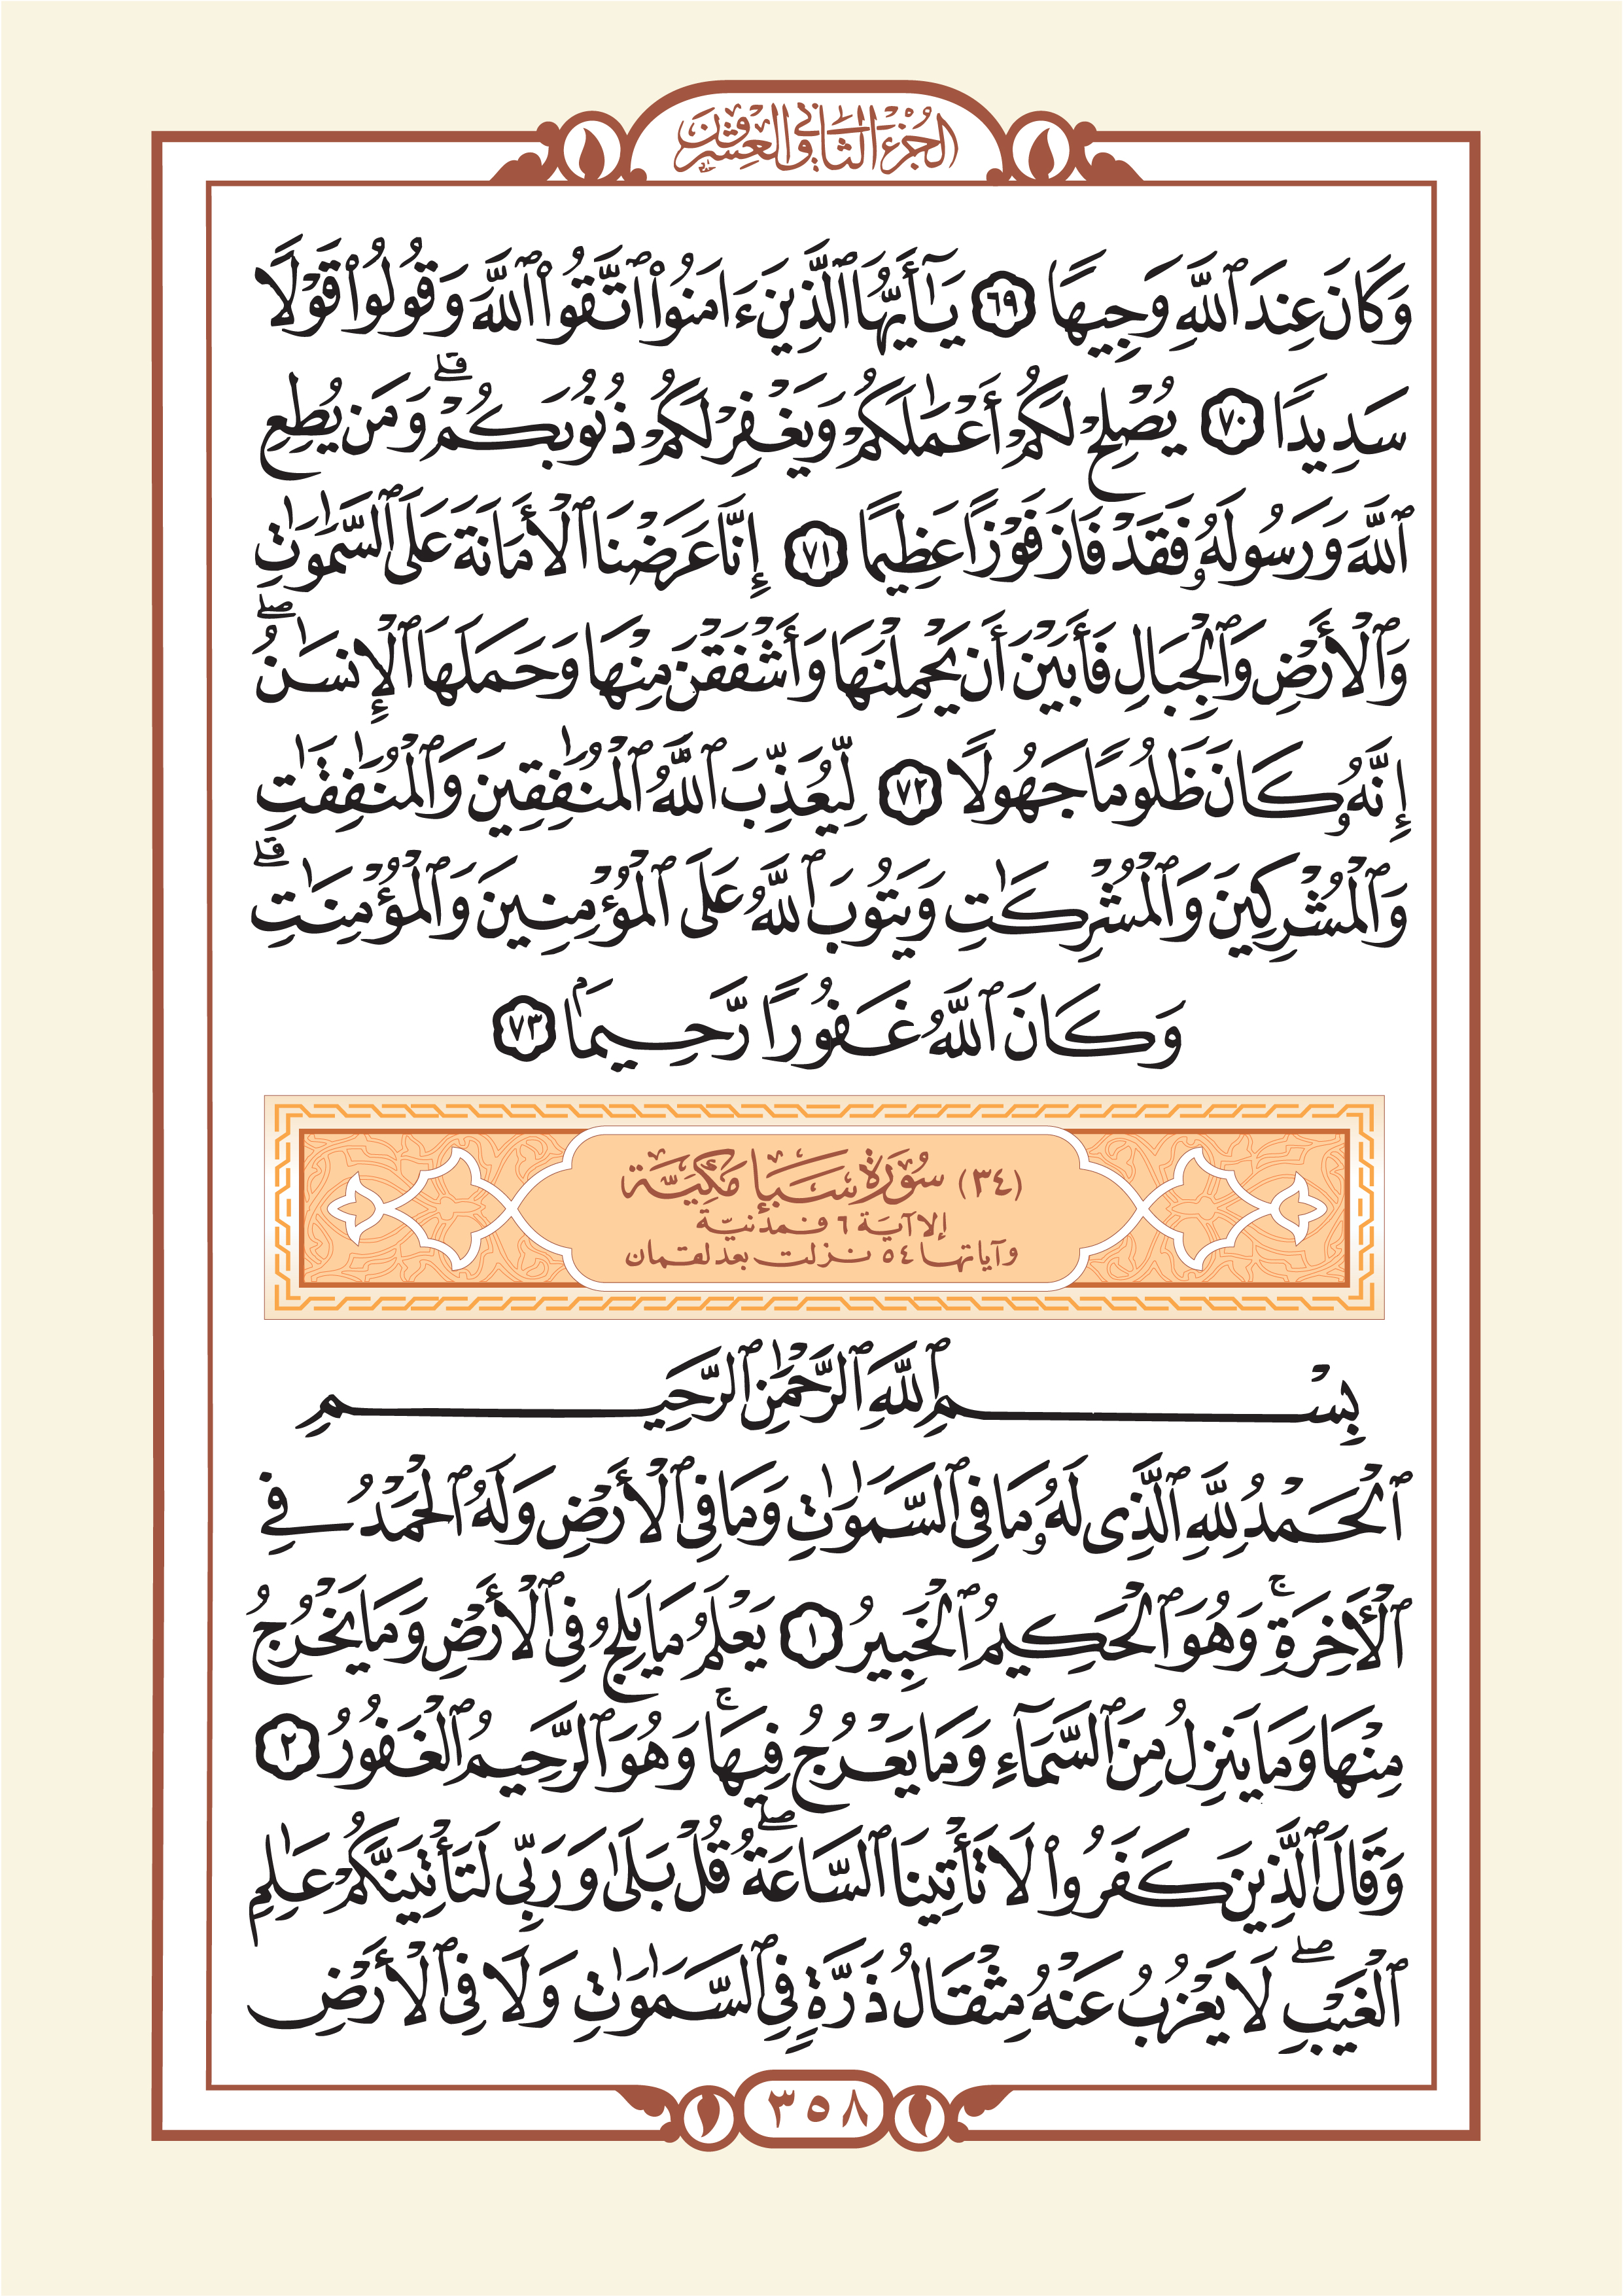 الجزء الثاني والعشرون
وَكَانَ عِندَ ٱللَّهِ وَجِيهًا ٦٩ يَـٰٓأَيُّهَا ٱلَّذِينَ ءَامَنُوا۟ ٱتَّقُوا۟ ٱللَّهَ وَقُولُوا۟ قَوْلًا
سَدِيدًا ٧٠ يُصْلِحْ لَكُمْ أَعْمَـٰلَكُمْ وَيَغْفِرْ لَكُمْ ذُنُوبَكُمْ ۗ وَمَن يُطِعِ
ٱللَّهَ وَرَسُولَهُۥ فَقَدْ فَازَ فَوْزًا عَظِيمًا ٧١ إِنَّا عَرَضْنَا ٱلْأَمَانَةَ عَلَى ٱلسَّمَـٰوَٰتِ
وَٱلْأَرْضِ وَٱلْجِبَالِ فَأَبَيْنَ أَن يَحْمِلْنَهَا وَأَشْفَقْنَ مِنْهَا وَحَمَلَهَا ٱلْإِنسَـٰنُ ۖ
إِنَّهُۥ كَانَ ظَلُومًا جَهُولًا ٧٢ لِّيُعَذِّبَ ٱللَّهُ ٱلْمُنَـٰفِقِينَ وَٱلْمُنَـٰفِقَـٰتِ
وَٱلْمُشْرِكِينَ وَٱلْمُشْرِكَـٰتِ وَيَتُوبَ ٱللَّهُ عَلَى ٱلْمُؤْمِنِينَ وَٱلْمُؤْمِنَـٰتِ ۗ
وَكَانَ ٱللَّهُ غَفُورًا رَّحِيمًۢا ٧٣
(٣٤) سُورَة سَبَإ مَكِّيَّة
إلا آية ٦ فمدنيّة
وآياتها ٥٤ نزلت بعد لقمان
بِسْمِ ٱللَّهِ ٱلرَّحْمَـٰنِ ٱلرَّحِيمِ
ٱلْحَمْدُ لِلَّهِ ٱلَّذِى لَهُۥ مَا فِى ٱلسَّمَـٰوَٰتِ وَمَا فِى ٱلْأَرْضِ وَلَهُ ٱلْحَمْدُ فِى
ٱلْـَٔاخِرَةِ ۚ وَهُوَ ٱلْحَكِيمُ ٱلْخَبِيرُ ١ يَعْلَمُ مَا يَلِجُ فِى ٱلْأَرْضِ وَمَا يَخْرُجُ
مِنْهَا وَمَا يَنزِلُ مِنَ ٱلسَّمَآءِ وَمَا يَعْرُجُ فِيهَا ۚ وَهُوَ ٱلرَّحِيمُ ٱلْغَفُورُ ٢
وَقَالَ ٱلَّذِينَ كَفَرُوا۟ لَا تَأْتِينَا ٱلسَّاعَةُ ۖ قُلْ بَلَىٰ وَرَبِّى لَتَأْتِيَنَّكُمْ عَـٰلِمِ
ٱلْغَيْبِ ۖ لَا يَعْزُبُ عَنْهُ مِثْقَالُ ذَرَّةٍ فِى ٱلسَّمَـٰوَٰتِ وَلَا فِى ٱلْأَرْضِ
٣٥٨